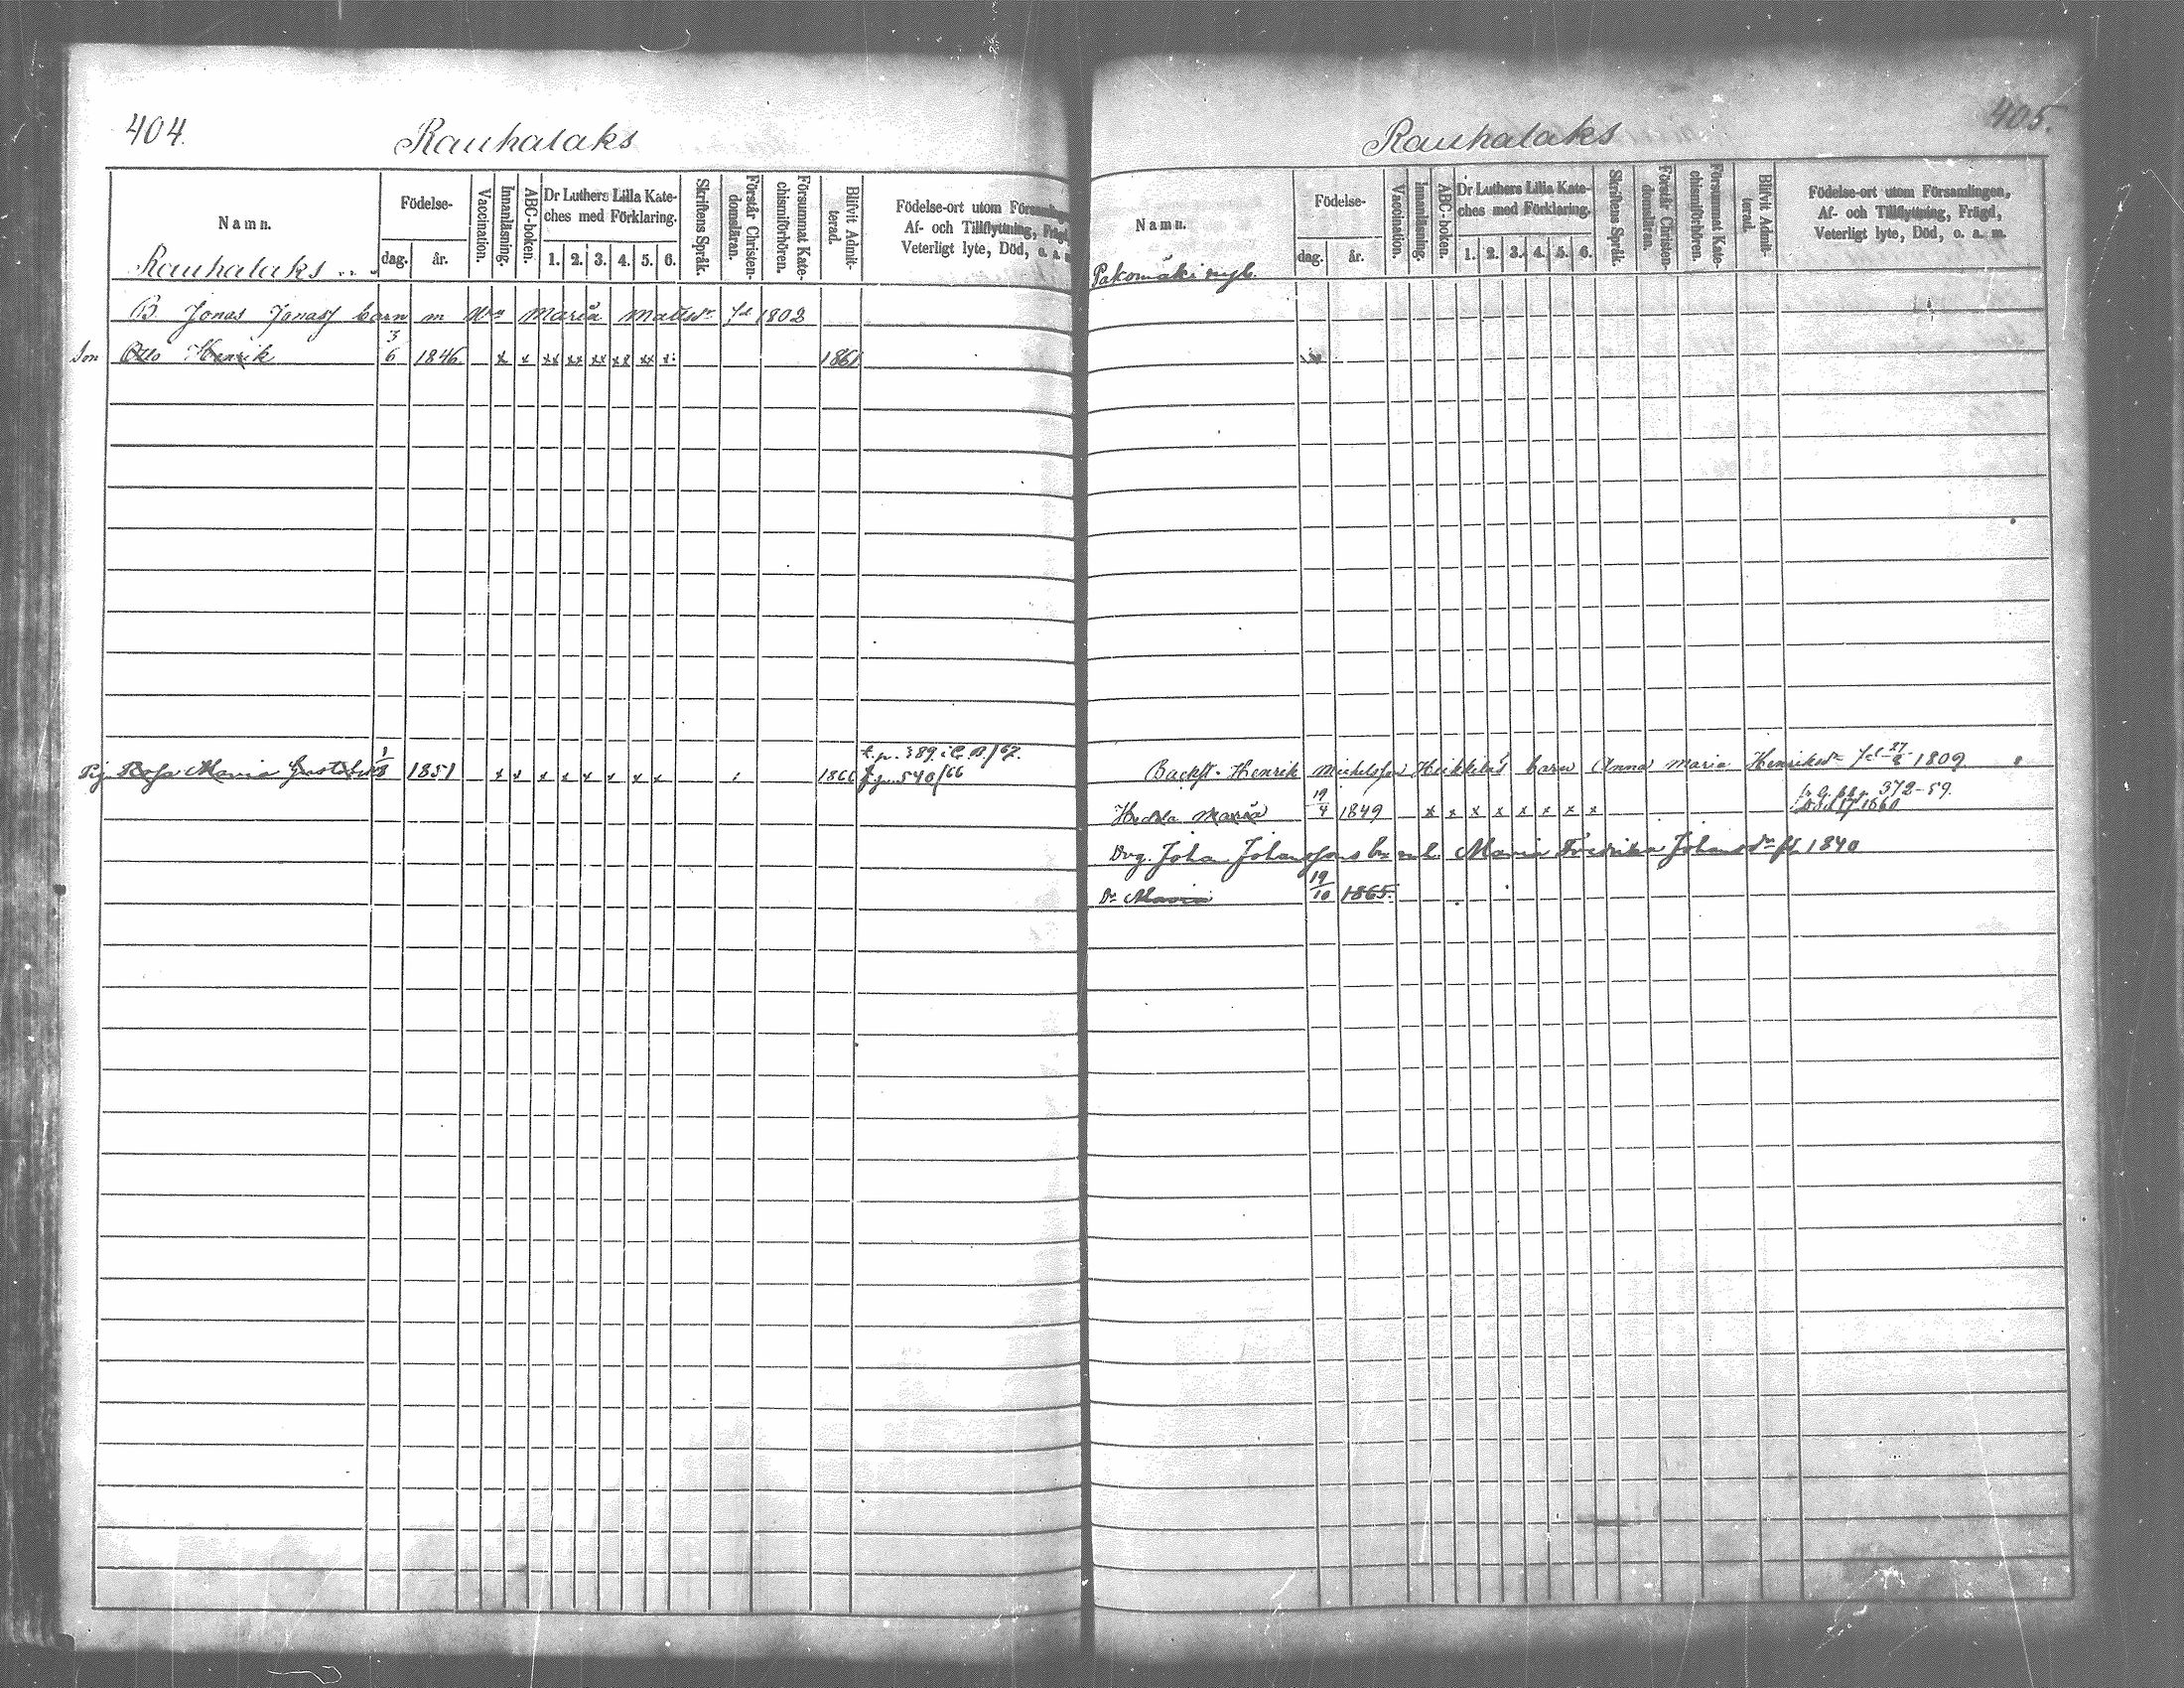 404.
Rauhalaks
Namn.
Födelse-
dag.
år.
Vaccination.
Innanläsning.
ABC-boken.
Dr Luthers Lilla Kate-
ches med Förklaring.
1. 2. 3. 4. 5. 6.
Skriftens Språk.
Förstår Christen-
domsläran.
Försummat Kate-
chismiförhören.
Blifvit Admit-
terad.
Födelse-ort utom Församlingen,
Af- och Tillflyttning, Frägd,
Veterligt lyte, Död, o. a. m.
Rauhalaks
B. Jonas Jonass barn m Maria Mattsdr fd 1802
Son Otto Henrik 3/6 1846 x x xx xx xx xx xx x 1861
t. p. 389 /67.
Pig. Rosa Maria 1/8 1851 x x x x x x x x 1866 f. p. 540/66
405.
Rauhalaks
Namn.
Födelse-
dag.
år.
Vaccination.
Innanläsning.
ABC-boken.
Dr Luthers Lilla Kate-
ches med Förklaring.
1. 2. 3. 4. 5. 6.
Skriftens Språk.
Förstår Christen-
domsläran.
Försummat Kate-
chismiförhören.
Blifvit Admit-
terad.
Födelse-ort utom Församlingen,
Af- och Tillflyttning, Frägd,
Veterligt lyte, Död, o. a. m.
Pakomäki nyb.
Backst. Henrik Michelsson Heikkelä's barn Anna Maria Henriksdr fd 27 1809
372-59.
Hedda Maria 19/4 1849 x x x x x x x x 1860
Drg. Johan Johanssons Maria Fredrika Johansdr fd. 1840
Dr Maria 19/10 1865.